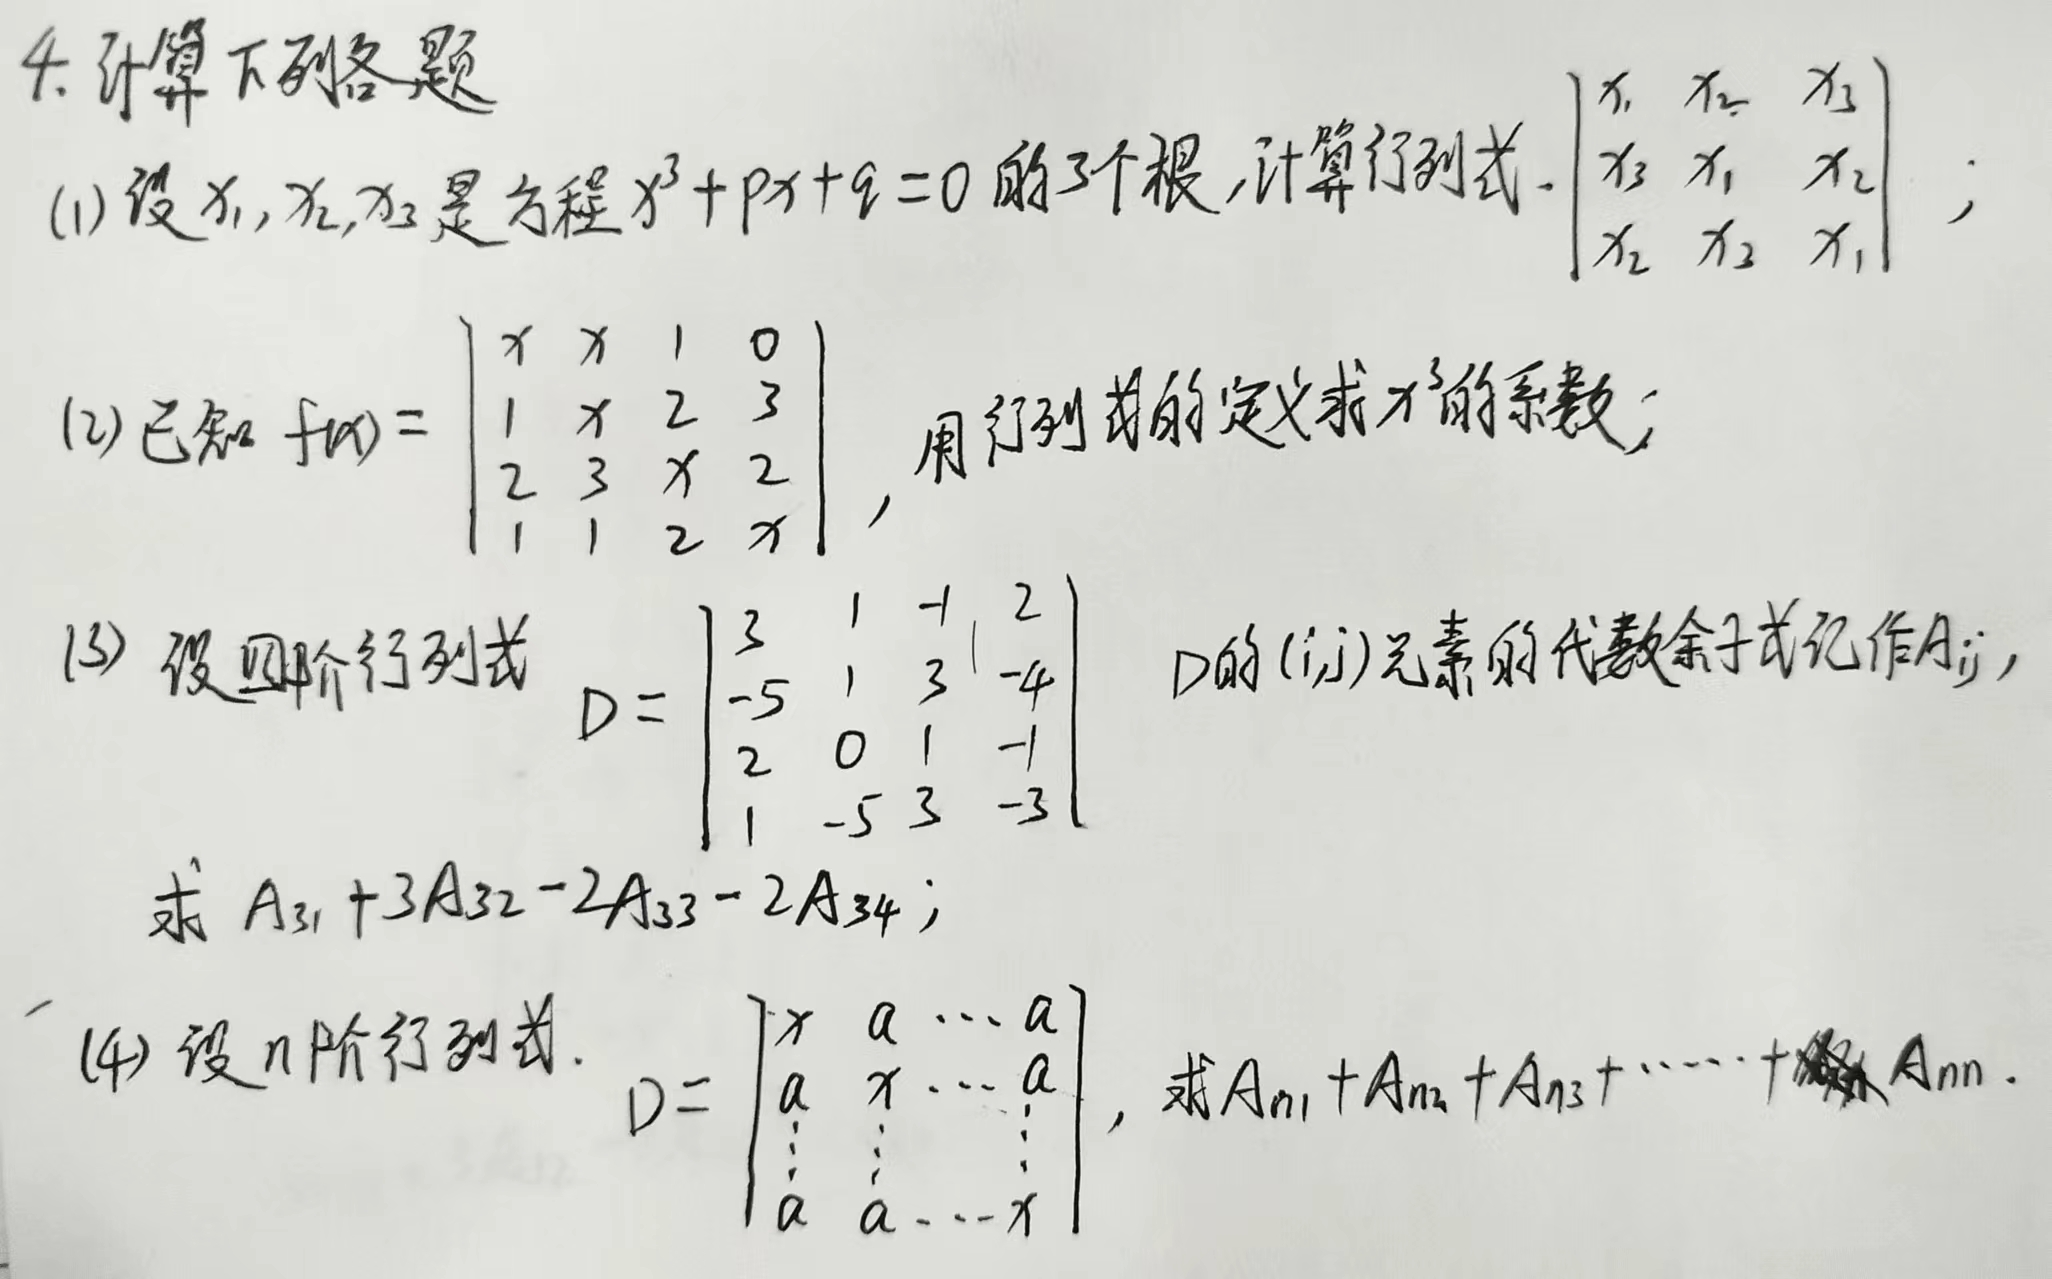 4. 计算下列各题
(1) 设 x₁, x₂, x₃ 是方程 x³+px+q=0 的3个根, 计算行列式. | x₁ x₂ x₃ |
| x₃ x₁ x₂ | ;
| x₂ x₃ x₁ |
(2) 已知 f(x) = | x x 1 0 |
| 1 x 2 3 |
| 2 3 x 2 | , 用行列式的定义求 x³ 的系数;
| 1 1 2 x |
(3) 设四阶行列式 D = | 3 1 -1 2 |
| -5 1 3 -4 | D的(i,j)元素的代数余子式记作Aᵢⱼ,
| 2 0 1 -1 |
| 1 -5 3 -3 |
求 A₃₁+3A₃₂-2A₃₃-2A₃₄;
(4) 设n阶行列式. D = | x a ⋯ a |
| a x ⋯ a | , 求Aₙ₁+Aₙ₂+Aₙ₃+⋯⋯+Aₙₙ.
| ⋮ ⋮ ⋮ |
| a a ⋯ x |